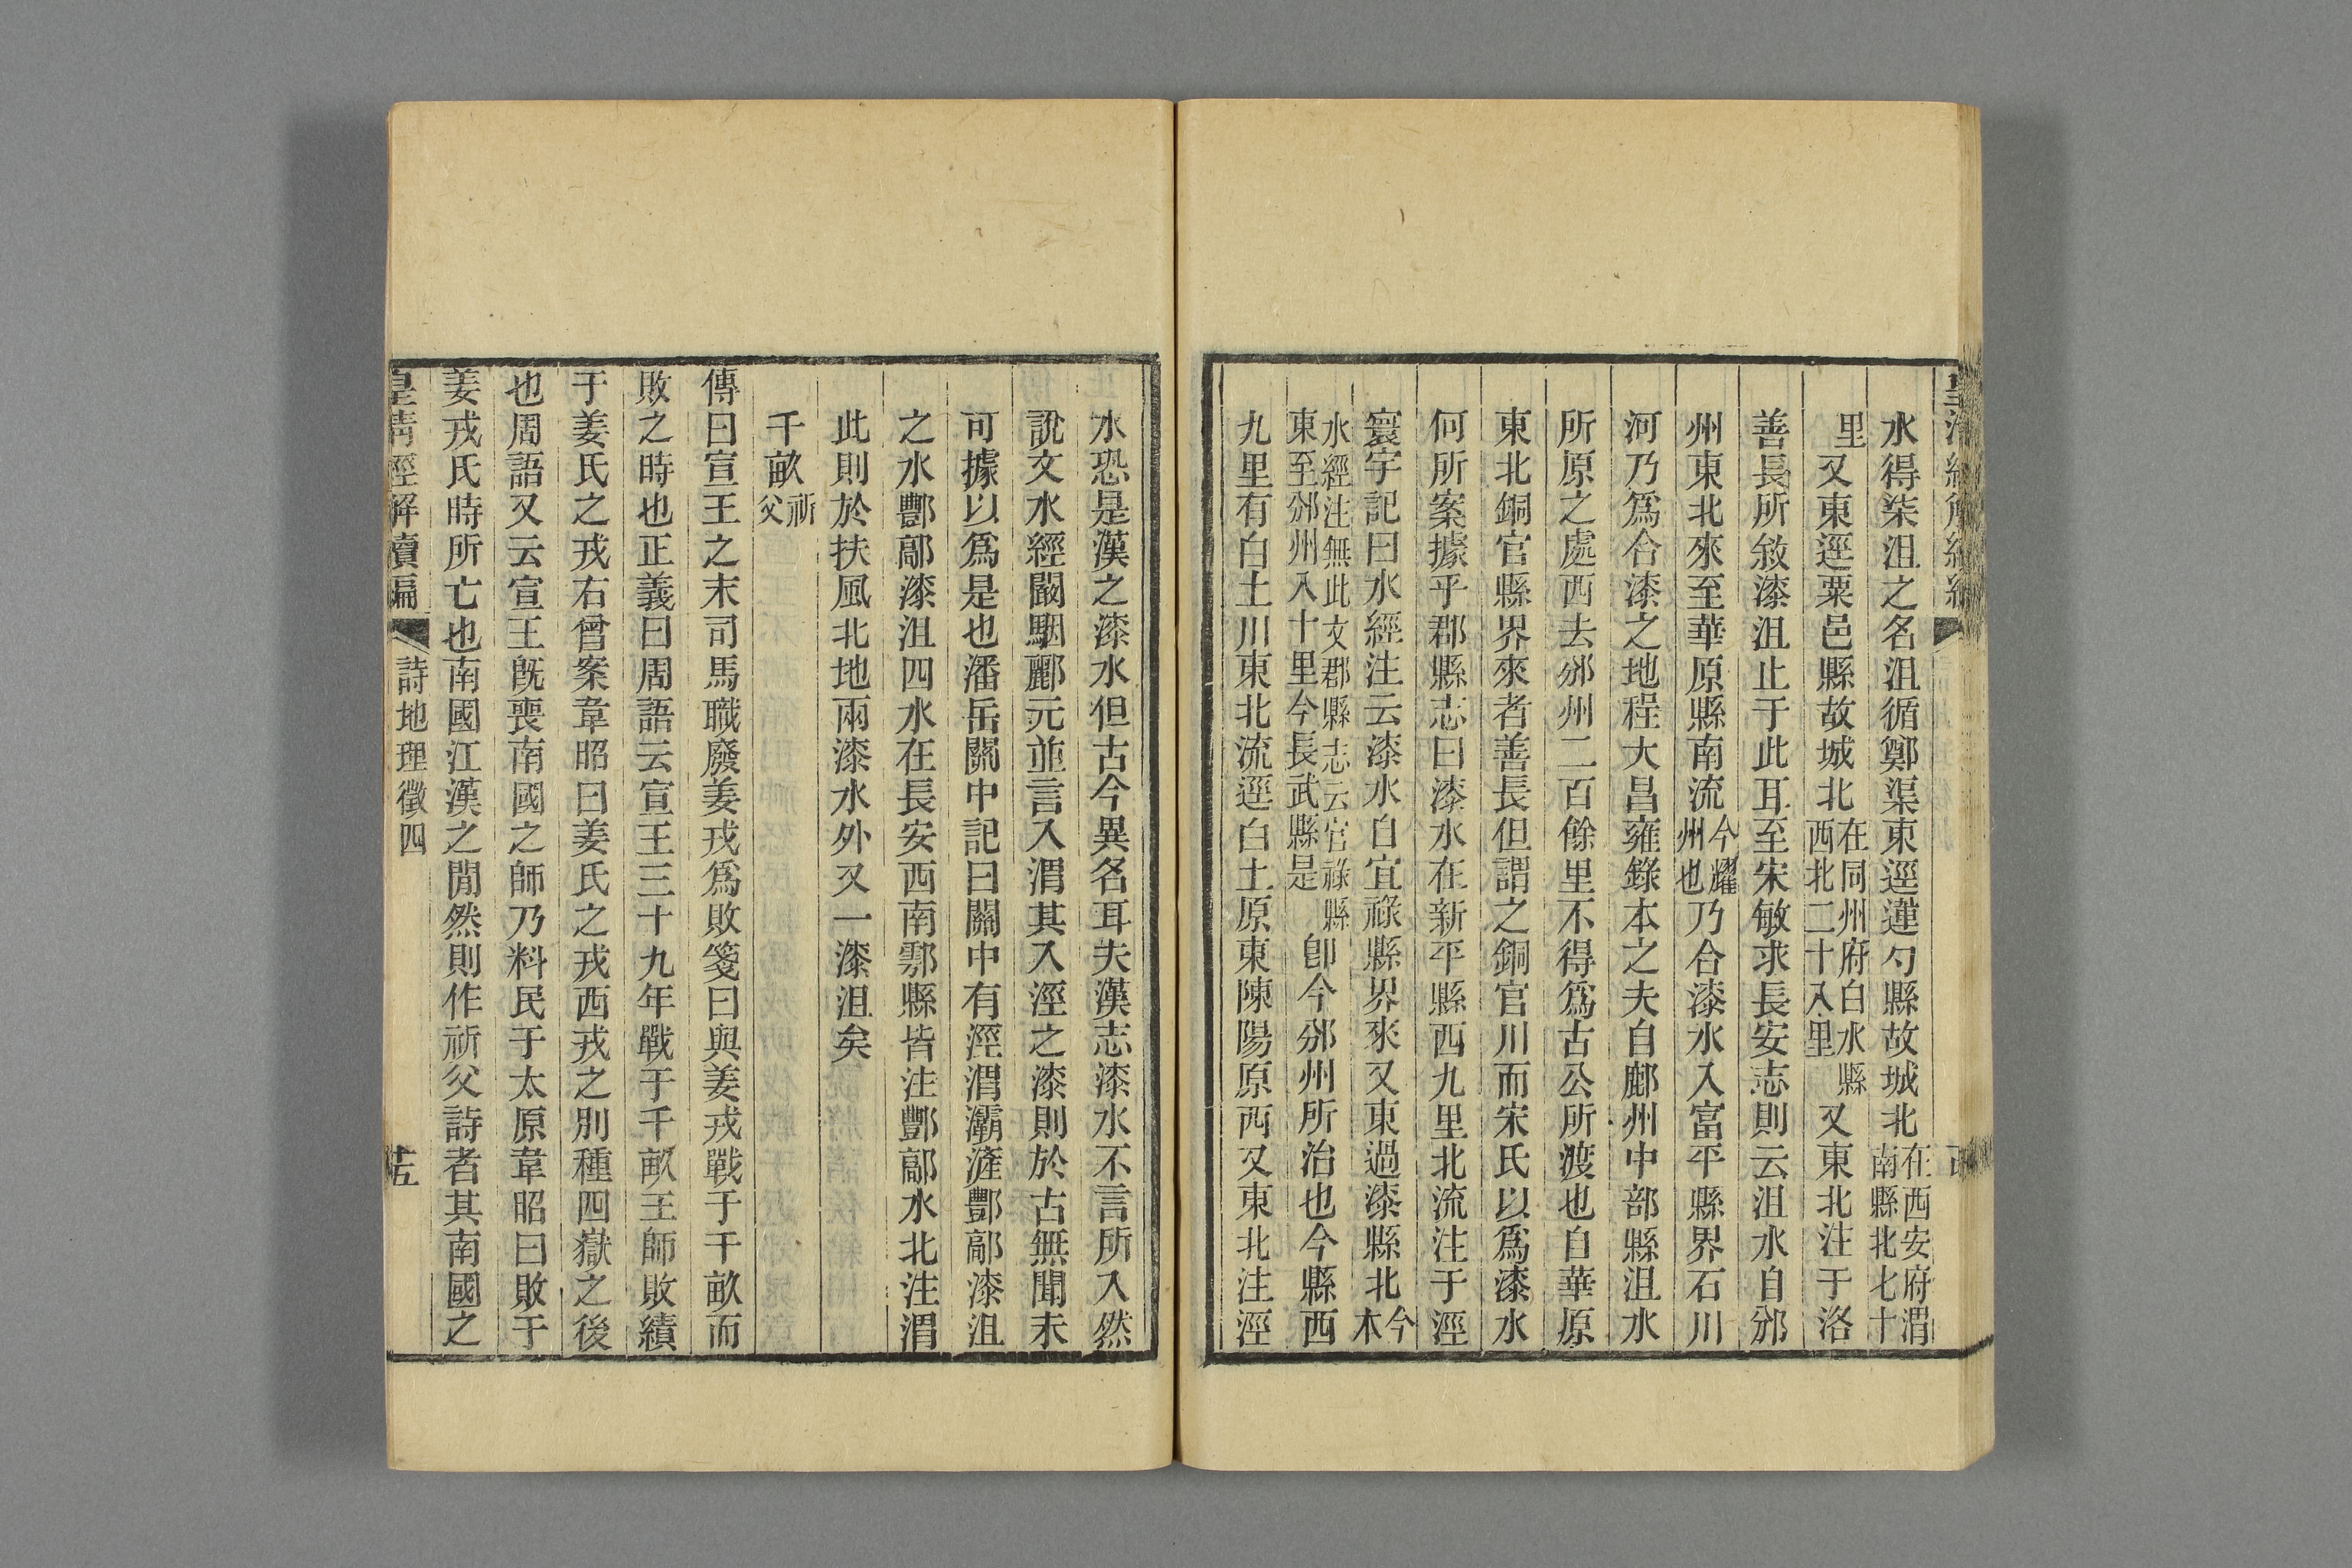 水得柒沮之名沮循鄭渠東逕蓮勺縣故城北在西安府渭南縣北七十
里又東逕粟邑縣故城北在同州府白水縣西北二十八里又東北注于洛
善長所敘漆沮止于此耳至宋敏求長安志則云沮水自邠
州東北來至華原縣南流今耀州也乃合漆水入富平縣界石川
河乃爲合漆之地程大昌雍錄本之夫自鄜州中部縣沮水
所原之處西去邠州二百餘里不得爲古公所渡也自華原
東北銅官縣界來者善長但謂之銅官川而宋氏以爲漆水
何所案據乎郡縣志曰漆水在新平縣西九里北流注于涇
寰宇記曰水經注云漆水自宜祿縣界來又東過漆縣北今本
水經注無此文郡縣志云宜祿縣東至邠州八十里今長武縣是卽今邠州所治也今縣西
九里有白土川東北流逕白土原東陳陽原西又東北注涇
水恐是漢之漆水但古今異名耳夫漢志漆水不言所入然
說文水經闞駰酈元並言入渭其入涇之漆則於古無聞未
可據以爲是也潘岳關中記曰關中有涇渭灞滻酆鄗漆沮
之水酆鄗漆沮四水在長安西南鄠縣皆注酆鄗水北注渭
此則於扶風北地兩漆水外又一漆沮矣
千畝祈父
傳曰宣王之末司馬職廢姜戎爲敗箋曰與姜戎戰于千畝而
敗之時也正義曰周語云宣王三十九年戰于千畝王師敗績
于姜氏之戎右曾案韋昭曰姜氏之戎西戎之別種四嶽之後
也周語又云宣王旣喪南國之師乃料民于太原韋昭曰敗于
姜戎氏時所亡也南國江漢之閒然則作祈父詩者其南國之
皇清經解續編 詩地理徵四 十五